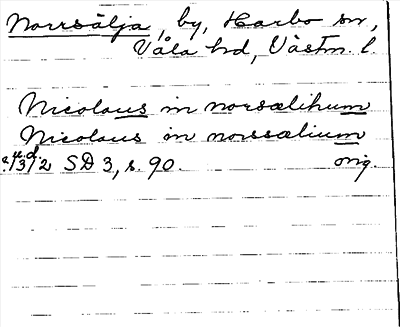 Norrsälja, by, Harbo sn,
Våla hd, Västm. l.
Nicolaus in norsælikum
Nicolaus in norssælium
SD 3, s. 90. orig.